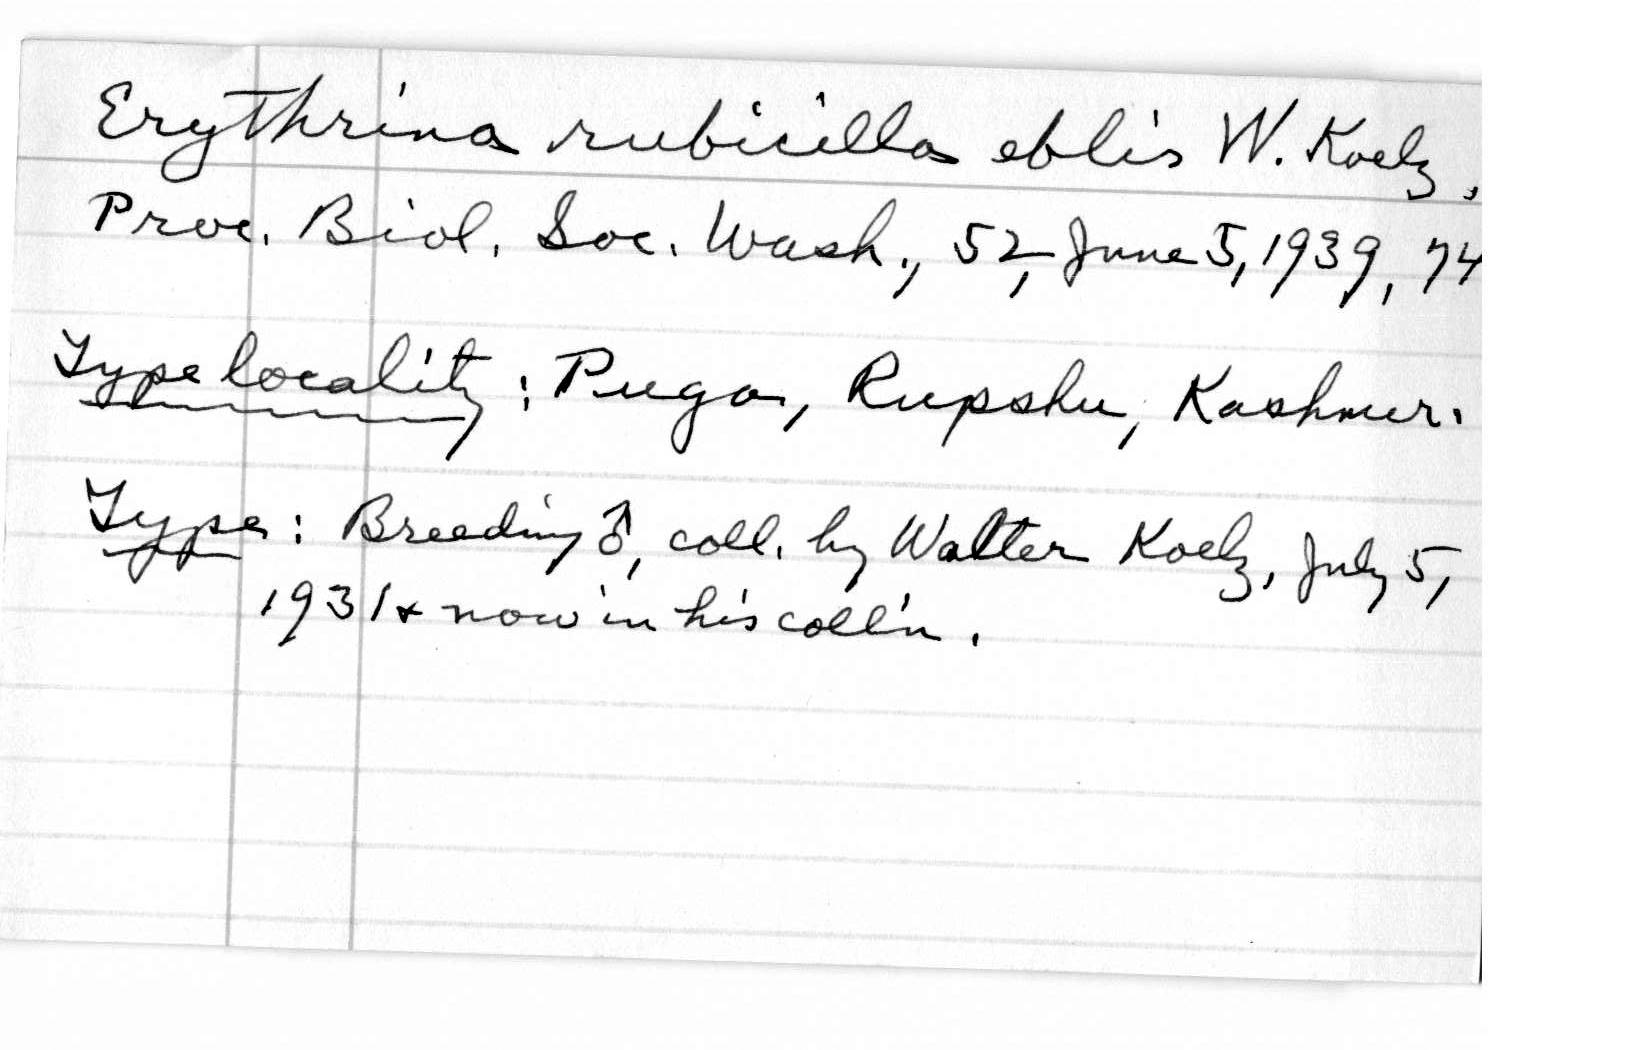 Erythrina rubicilla eblis W. Koelz,
Proc. Biol. Soc. Wash., 52, June 5, 1939, 74
Type locality: Puga, Rupshu, Kashmir.
Type: Breeding ♂, coll. by Walter Koelz, July 5,
1931 & now in his coll'n.